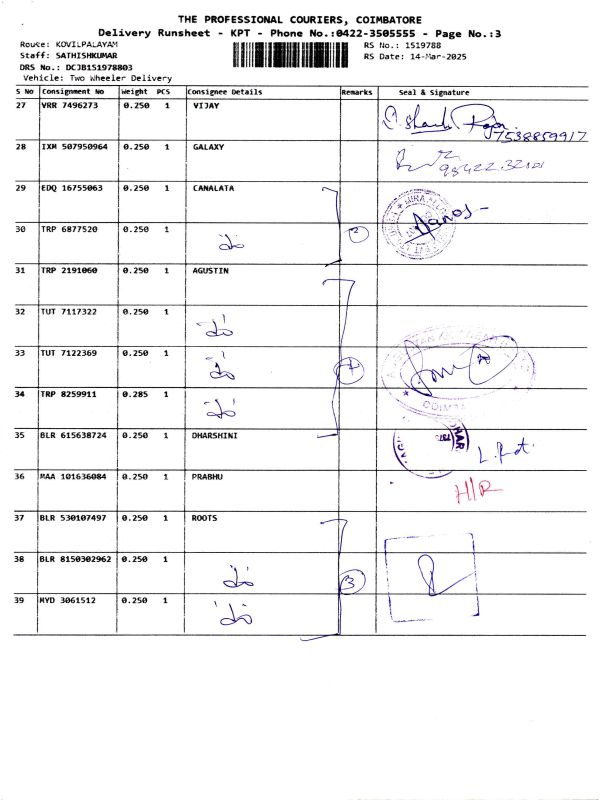 THE PROFESSIONAL COURIERS, COIMBATORE
Delivery Runsheet - KPT - Phone No.:0422-3505555 - Page No.:3
Route: KOVILPALAYAM RS No.: 1519788
Staff: SATHISHKUMAR RS Date: 14-Mar-2025
DRS No.: DCJB151978803
Vehicle: Two Wheeler Delivery
S No Consignment No Weight PCS Consignee Details Remarks Seal & Signature
27 VRR 7496273 0.250 1 VIJAY
7538859917
28 IXM 507950964 0.250 1 GALAXY
29 EDQ 16755063 0.250 1 CANALATA
30 TRP 6877520 0.250 1 2
31 TRP 2191060 0.250 1 AGUSTIN
32 TUT 7117322 0.250 1
33 TUT 7122369 0.250 1
34 TRP 8259911 0.285 1
35 BLR 615638724 0.250 1 DHARSHINI
36 MAA 101636084 0.250 1 PRABHU H/R
37 BLR 530107497 0.250 1 ROOTS
38 BLR 8150302962 0.250 1 3
39 MYD 3061512 0.250 1